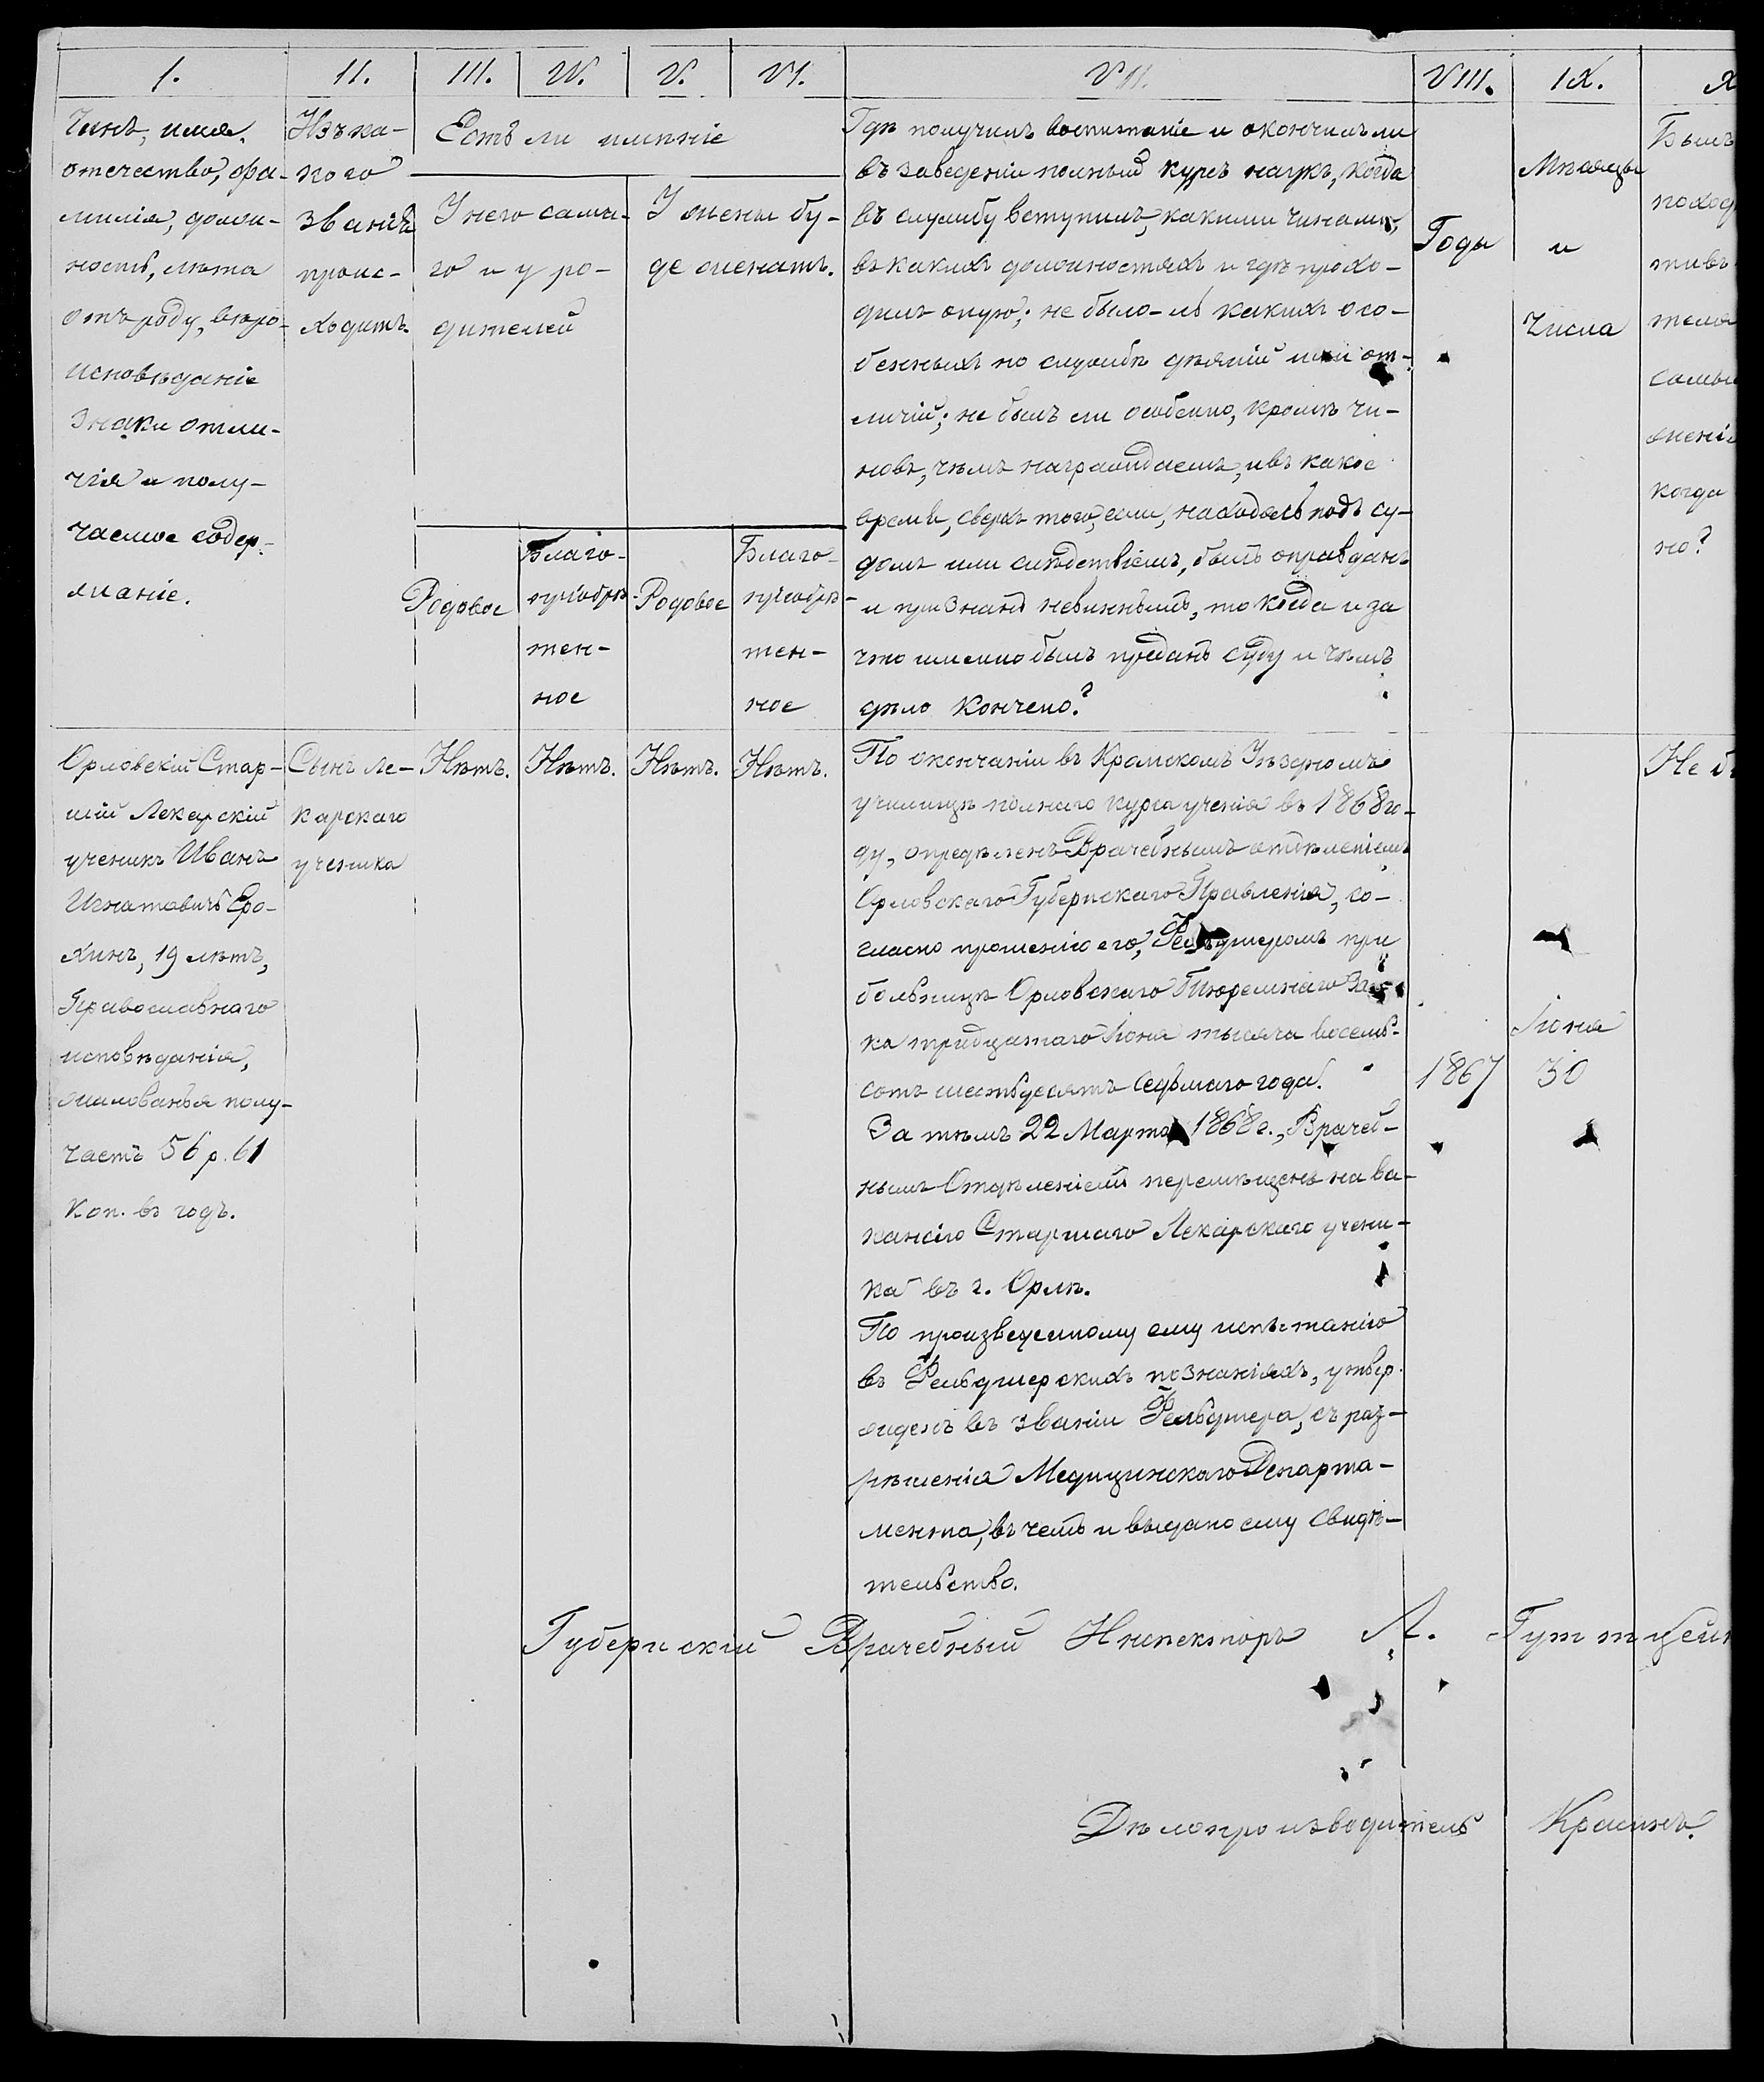 I. II. III. IV. V. VI. VII. VIII. IX. X
Чинъ, имя,
отечество, фа-
милія, долж-
ность, лѣта
отъ роду, вѣро-
исповѣданіе
знаки отли-
чія и полу-
чаемое содер-
жаніе.
Изъ ка-
кого
званія
проис-
ходитъ.
Есть ли имѣніе
У него само-
го и у ро-
дителей
У жены бу-
де женатъ.
Родовое
Благо-
пріобрѣ-
тен-
ное
Родовое
Благо-
пріобрѣ-
тен-
ное
Гдѣ получилъ воспитаніе и окончилъ ли
въ заведеніи полный курсъ наукъ, когда
въ службу вступилъ, какими чинами,
въ какихъ должностяхъ и гдѣ прохо-
дилъ оную; не было-ль какихъ осо-
бенныхъ по службѣ дѣяній или от-
личій; не былъ ли особенно, кромѣ чи-
новъ, чѣмъ награждаемъ, и въ какое
время, сверхъ того, если, находясь подъ су-
домъ или слѣдствіемъ, былъ оправданъ
и признанъ невиннымъ, то когда и за
что именно былъ преданъ суду и чѣмъ
дѣло кончено?
Годы
Мѣсяцы
и
Числа
Былъ
поход
тивъ
теля
самы
жені
когда
но?
Орловскій Стар-
шій Лекарскій
ученикъ Иванъ
Игнатовичъ Еро-
хинъ, 19 лѣтъ,
Православнаго
исповѣданія,
жалованья полу-
чаетъ 56 р. 61
коп. въ годъ.
Сынъ ле-
карскаго
ученика
Нѣтъ. Нѣтъ. Нѣтъ. Нѣтъ.
По окончаніи въ Кромскомъ Уѣздномъ
училищѣ полнаго курса ученія въ 1868 го-
ду, опредѣленъ Врачебнымъ отдѣленіемъ
Орловскаго Губернскаго Правленія, со-
гласно прошенію его, Фельдшеромъ при
больницѣ Орловскаго Тюремнаго Зам-
ка тридцатаго Іюня тысяча восемь-
сотъ шестьдесятъ седьмаго года.
За тѣмъ 22 Марта 1868 г., Врачеб-
нымъ Отдѣленіемъ перемѣщенъ на ва-
кансію Старшаго Лекарскаго учени-
ка въ г. Орлѣ.
По произведенному ему испытанію
въ Фельдшерскихъ познаніяхъ, утвер-
жденъ въ званіи Фельдшера, съ раз-
рѣшенія Медицинскаго Департа-
мента, въ чемъ и выдано ему свидѣ-
тельство.
1867
Іюня
30
Не б
Губернскій Врачебный Инспекторъ Л.
Дѣлопроизводитель Красинъ.